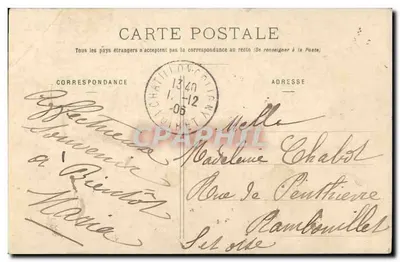 CARTE POSTALE
Tous les pays étrangers n'acceptent pas la correspondance au recto (Se renseigner à la Poste)
CORRESPONDANCE
ADRESSE
CHATILLON-COLIGNY
13 40
1 -12
06
LOIRET
Affectueux
Souvenir
à Bientôt
Maria
Melle
Madeleine Chabot
Rue de Penthièvre
Rambouillet
Set oise
CPARAMA